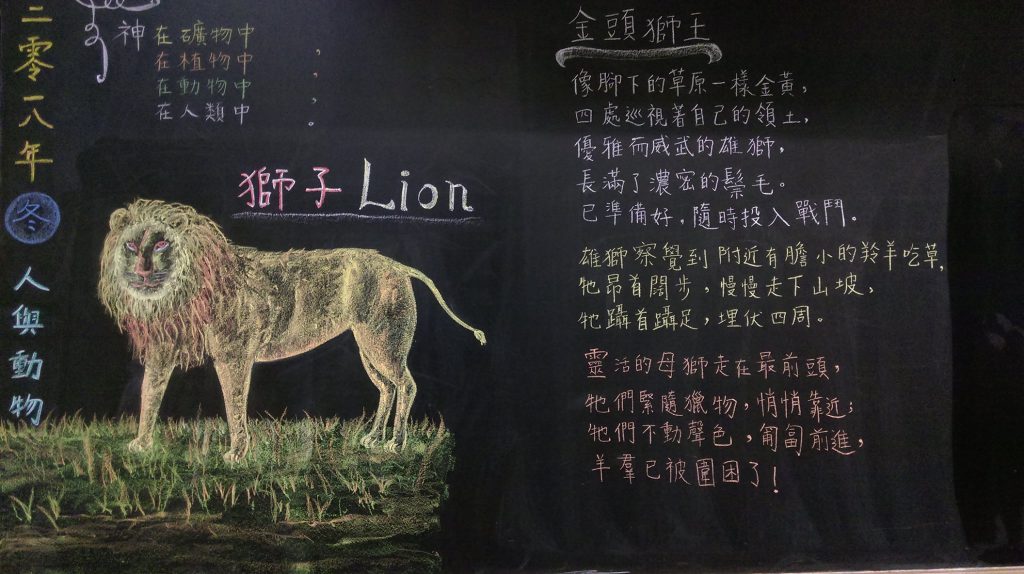 二零一八年
冬
人與動物
神
在礦物中，
在植物中，
在動物中，
在人類中。
獅子 Lion
金頭獅王
像腳下的草原一樣金黃，
四處巡視著自己的領土，
優雅而威武的雄獅，
長滿了濃密的鬃毛。
已準備好，隨時投入戰鬥。
雄獅察覺到附近有膽小的羚羊吃草，
牠昂首闊步，慢慢走下山坡，
牠躡首躡足，埋伏四周。
靈活的母獅走在最前頭，
牠們緊隨獵物，悄悄靠近；
牠們不動聲色，匍匐前進，
羊羣已被圍困了！